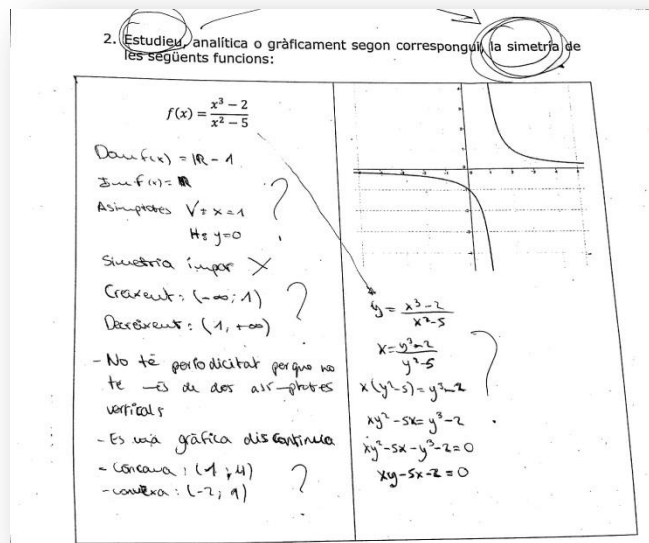 2. Estudieu, analítica o gràficament segon correspongui, la simetria de
les següents funcions:
f(x) = (x³ − 2)/(x² − 5)
Dom f(x) = ℝ - 1
Im f(x) = ℝ
Asimptotes V: x = 1
H: y = 0
?
Simetria impar X
Creixent: (-∞; 1)
Decreixent: (1, +∞)
?
- No té periodicitat perque no
te
de dos
verticals
- Es
gràfica discontinua
- concava: (1; 4)
- convexa: (-2; 9)
?
y = (x³ - 2)/(x² - 5)
x = (y³ - 2)/(y² - 5)
x(y² - 5) = y³ - 2
xy² - 5x = y³ - 2
xy² - 5x - y³ - 2 = 0
xy - 5x - 2 = 0
?